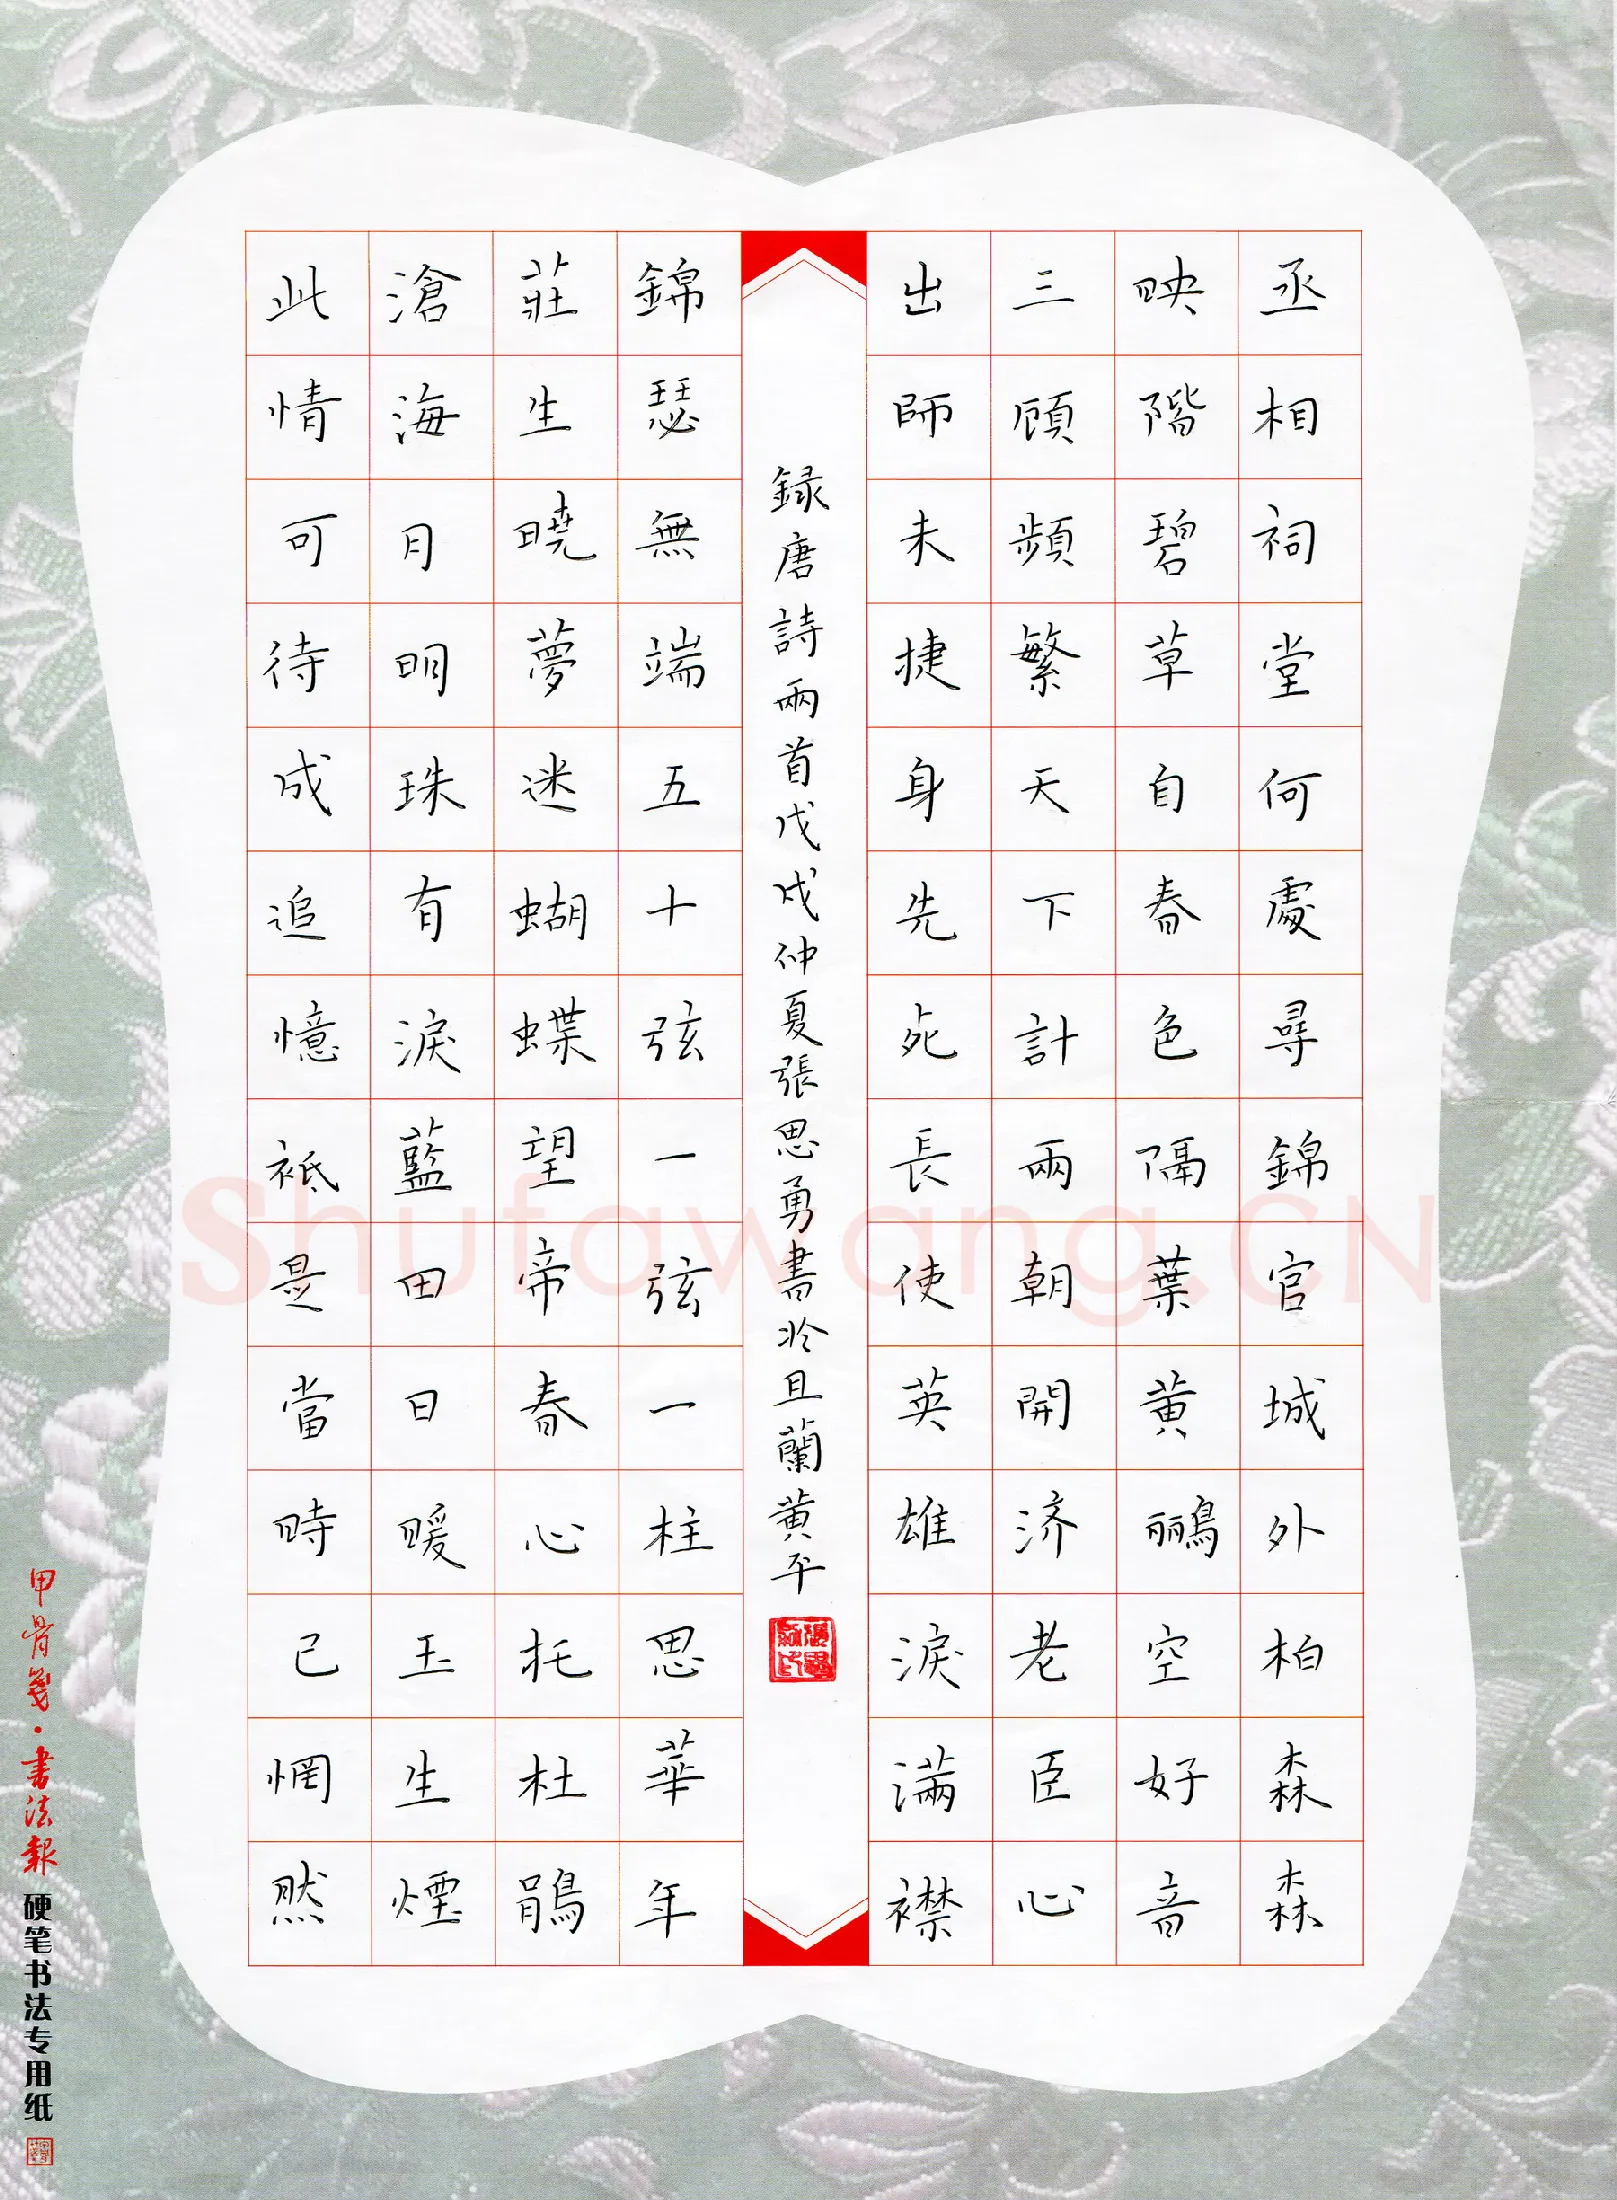 丞相祠堂何處尋錦官城外柏森森
映階碧草自春色隔葉黄鸝空好音
三顧頻繁天下計兩朝開济老臣心
出師未捷身先死長使英雄淚滿襟
録唐詩兩首戊戌仲夏張思勇書於且蘭黄平
錦瑟無端五十弦一弦一柱思華年
莊生曉夢迷蝴蝶望帝春心托杜鵑
滄海月明珠有淚藍田日暖玉生煙
此情可待成追憶祗是當時已惘然
甲骨箋·書法報 硬笔书法专用纸
Shufawang.CN